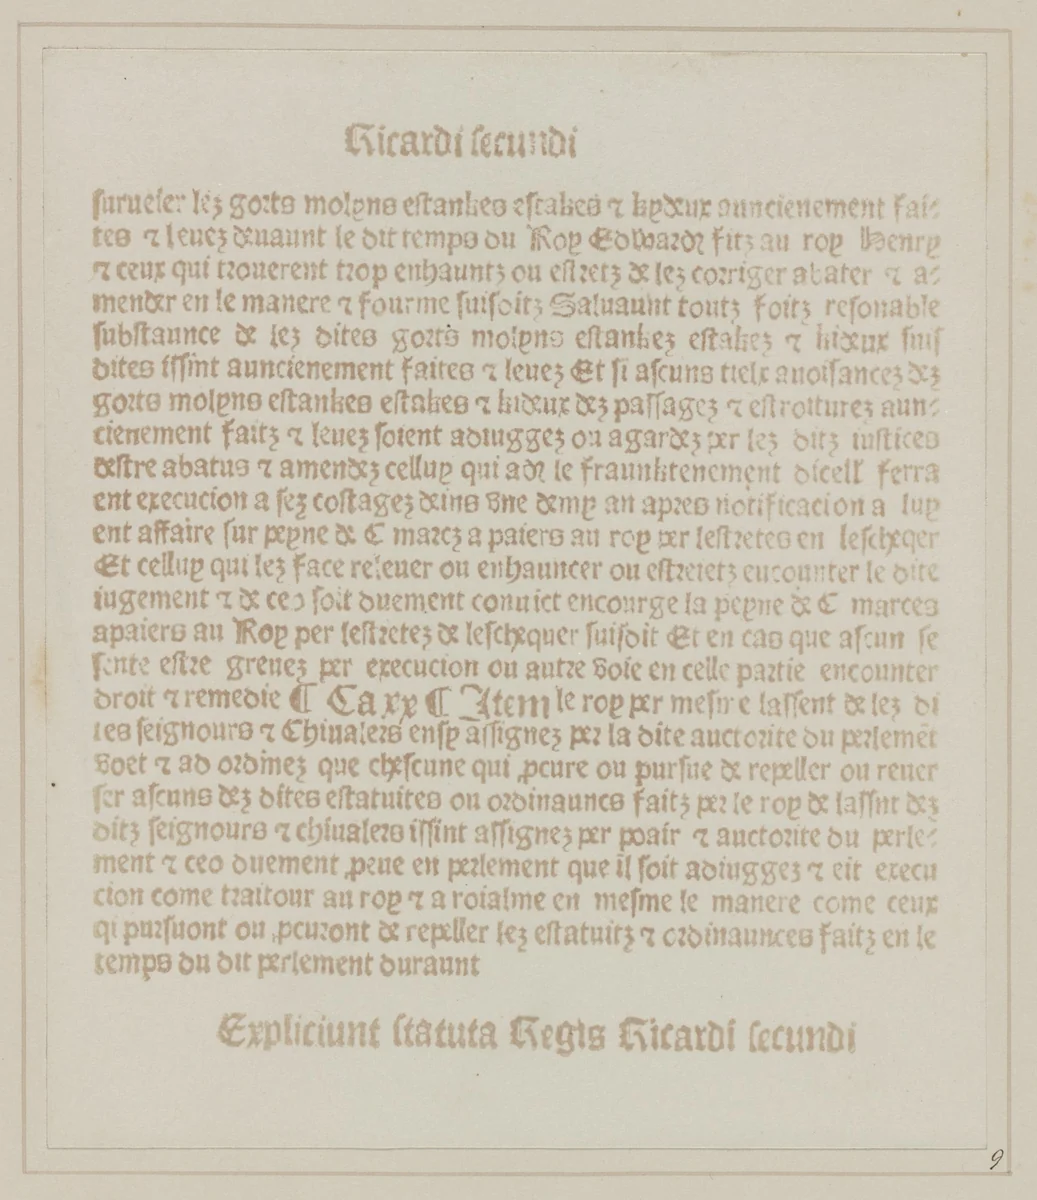 Ricardi secundi
surueier lez gorts molyns estankes estakes ⁊ kydeux auncienement fai
tes ⁊ leuez deuaunt le dit temps du Roy Edwardꝫ fitz au roy Henry
⁊ ceux qui trouerent trop enhauntz ou estretz de lez corriger abater ⁊ a
mender en le manere ⁊ fourme suisoitz Saluaunt toutz foitz resonable
substaunce de lez dites gorts molyns estankez estakez ⁊ kideux suis
dites issint auncienement faites ⁊ leuez Et si ascuns tielx anoisancez dez
gorts molyns estankes estakes ⁊ kideux dez passagez ⁊ estroiturez aun
cienement faitz ⁊ leuez soient adiuggez ou agardez per lez ditz iustices
destre abatus ⁊ amendez celluy qui adꝫ le franktenement dicell ferra
ent execucion a sez costagez deins vne demy an apres notificacion a luy
ent affaire sur peyne de C marcz a paiers au roy per lestretes en lescheqer
Et celluy qui lez face releuer ou enhauncer ou estreietz encounter le dite
iugement ⁊ de ceo soit duement conuict encourge la peyne de C marces
apaiers au Roy per lestretez de leschequer suisdit Et en cas que ascun se
sente estre greuez per execucion ou autre voie en celle partie encounter
droit ⁊ remedie ¶ Ca xx ¶ Item le roy per mesme lassent de lez di
tes seignours ⁊ Chiualers ensy assignez per la dite auctorite du perlemēt
voet ⁊ ad ordinez que chescune qui ꝓcure ou pursue de repeller ou reuer
ser ascuns dez dites estatuites ou ordinaunces faitz per le roy de lassnt dez
ditz seignours ⁊ chiualers issint assignez per poair ⁊ auctorite du perle
ment ⁊ ceo duement ꝓeue en perlement que il soit adiuggez ⁊ eit execu
cion come traitour au roy ⁊ a roialme en mesme le manere come ceux
qi pursuont ou ꝓcuront de repeller lez estatuitz ⁊ ordinaunces faitz en le
temps du dit perlement duraunt
Expliciunt statuta Regis Ricardi secundi
9